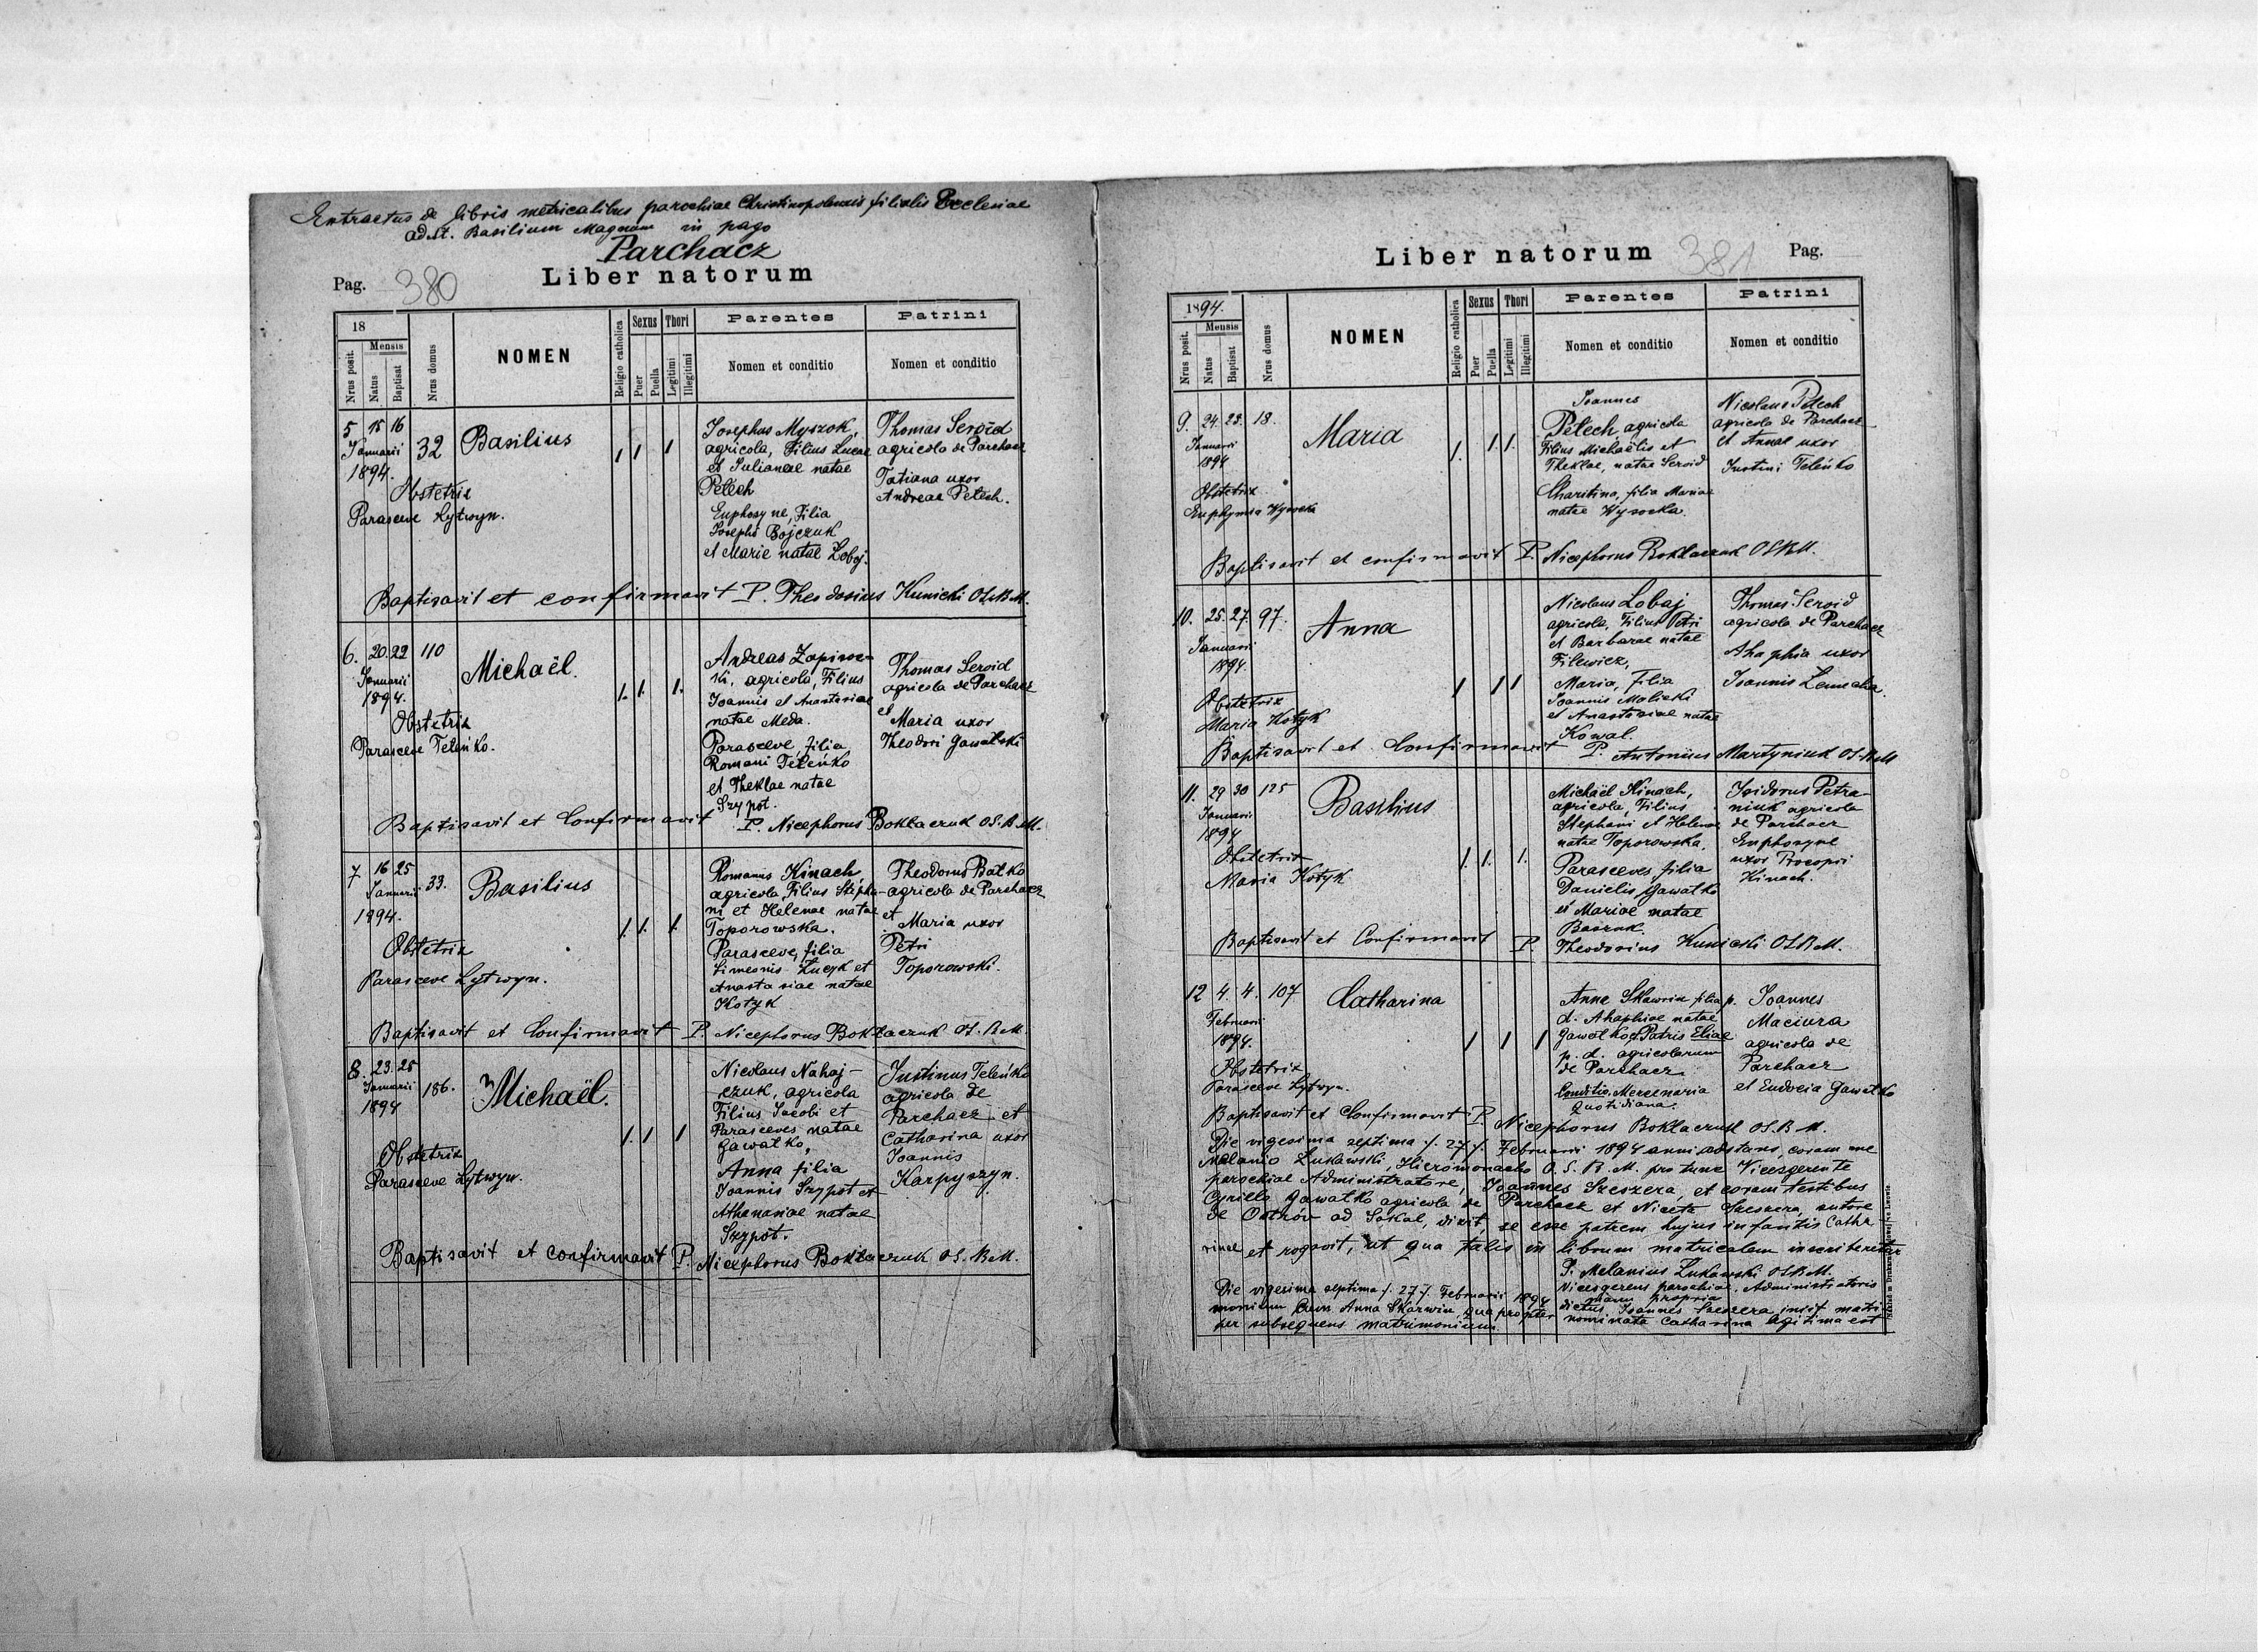 Extractus de libris metricalibus parochiae Christinopolensis filialis Ecclesiae
ad St. Basilium Magnum in pago
Parchacz
Pag. 380 Liber natorum
18
Nrus posit.
Mensis
Natus
Baptisat
Nrus domus
NOMEN
Religio catholica
Sexus
Puer
Puella
Thori
Legitimi
Illegitimi
Parentes
Nomen et conditio
Patrini
Nomen et conditio
5 15 16
Januarii
1894.
32
Basilius
1 1 1
Obstetrix
Parasceve Lytwyn.
Josephus Myszok,
agricola, Filius Lucae
et Julianae natae
Petech
Euphosyne, Filia
Josephi Bojczuk
et Marie natae Łoboj.
Thomas Seroid
agricola de Parchacz
Tatiana uxor
Andreae Petech.
Baptisavit et confirmavit P. Theodosius Kunicki OSBM.
6. 20. 22 110
Januarii
1894.
Michaël.
1. 1. 1.
Obstetrix
Parasceve Teleńko.
Andreas Zapisoc-
ki, agricola, Filius
Joannis et Anastasiae
natae Meda.
Parasceve, filia
Romani Teleńko
et Theklae natae
Szypot.
Thomas Seroid
agricola de Parchacz
et
Maria uxor
Theodori Gawałski
Baptisavit et Confirmavit P. Nicephorus Bokłaczuk O.S.B.M.
7 16 25
Januarii
1894.
33.
Basilius
1. 1. 1.
Obstetrix
Parasceve Lytwyn.
Romanus Kinach
agricola, Filius Stepha-
ni et Helenae natae
Toporowska.
Parasceve, filia
Simeonis Łucyk et
Anastasiae natae
Kotyk
Theodorus Batko
agricola de Parchacz
et
Maria uxor
Petri
Toporowski.
Baptisavit et Confirmavit P. Nicephorus Bokłaczuk O.S.B.M.
8. 23. 25
Januarii
1894
186.
Michaël.
1. 1 1
Obstetrix
Parasceve Lytwyn.
Nicolaus Nahaj-
czuk, agricola
Filius Jacobi et
Parasceves natae
Gawałko,
Anna filia
Joannis Szypot et
Athanasiae natae
Szypot.
Justinus Teleńko
agricola de
Parchacz et
Catharina uxor
Joannis
Karpyszyn.
Baptisavit et confirmavit P. Nicephorus Bokłaczuk O.S.B.M.
Liber natorum 381 Pag.
1894.
Nrus posit.
Mensis
Natus
Baptisat
Nrus domus
NOMEN
Religio catholica
Sexus
Puer
Puella
Thori
Legitimi
Illegitimi
Parentes
Nomen et conditio
Patrini
Nomen et conditio
9. 24. 25. 18.
Januarii
1894
Maria
1. 1. 1.
Obstetrix
Euphymia Wysocka
Joannes
Petech agricola
Filius Michaëlis et
Theklae, natae Seroid
Charitina, filia Mariae
natae Wysocka.
Nicolaus Petech
agricola de Parchacz
et Annae uxor
Justini Teleńko
Baptisavit et confirmavit P. Nicephorus Bokłaczuk OSBM.
10. 25. 27. 97.
Januarii
1894.
Anna
1 1 1
Obstetrix
Maria Kotyk
Nicolaus Łobaj
agricola, Filius Petri
et Barbarae natae
Filewicz,
Maria, filia
Joannis Molicki
et Anastasiae natae
Kowal.
Thomas Seroid
agricola de Parchacz
Ahaphia uxor
Joannis Zemecha.
Baptisavit et Confirmavit P. Antonius Martyniuk OSBM
11. 29 30 125
Januarii
1894
Basilius
1. 1. 1.
Obstetrix
Maria Kotyk
Michaël Kinach,
agricola, Filius
Stephani et Helenae
natae Toporowska.
Parasceves, filia
Danielis Gawałko
et Mariae natae
Baszuk.
Isidorus Petra-
niuk agricola
de Parchacz
Euphosyne
uxor Procopii
Kinach.
Baptisavit et Confirmavit P. Theodosius Kunicki OSBM.
12 4. 4. 107
Februarii
1894.
Catharina
1 1 1
Obstetrix
Parasceve Lytwyn.
Anna Skawrin filia p.
d. Ahaphiae natae
Gawałko, et Patris Eliae
p. d. agricolarum
de Parchacz.
Conditio Mercenaria
quotidiana.
Joannes
Maciura
agricola de
Parchacz
et Eudocia Gawałko
Baptisavit et Confirmavit P. Nicephorus Bokłaczuk O.S.B.M.
Die vigesima septima /. 27 /. Februarii 1894 anni adstans, coram me
Melanio Łukawski, Hieromonacho O.S.B.M. pro tunc Vicesgerente
parochiae Administratore, Joannes Szeszera, et coram testibus
Cyrillo Gawałko agricola de Parchacz et Niceta Szeszera, sutore
de Ostrów ad Sokal, dixit, se esse patrem hujus infantis Catha
rinae et rogavit, ut qua talis in librum matricalem inscriberetur
P. Melanius Łukawski OSBM.
Vicesgerens parochiae Administratoris
manu propria
Die vigesima septima /. 27 /. Februarii 1894 dictus Joannes Szeszera inist matri
monium cum Anna Skarwin, qua propter nominata Catharina legitima est
per subsequens matrimonium.